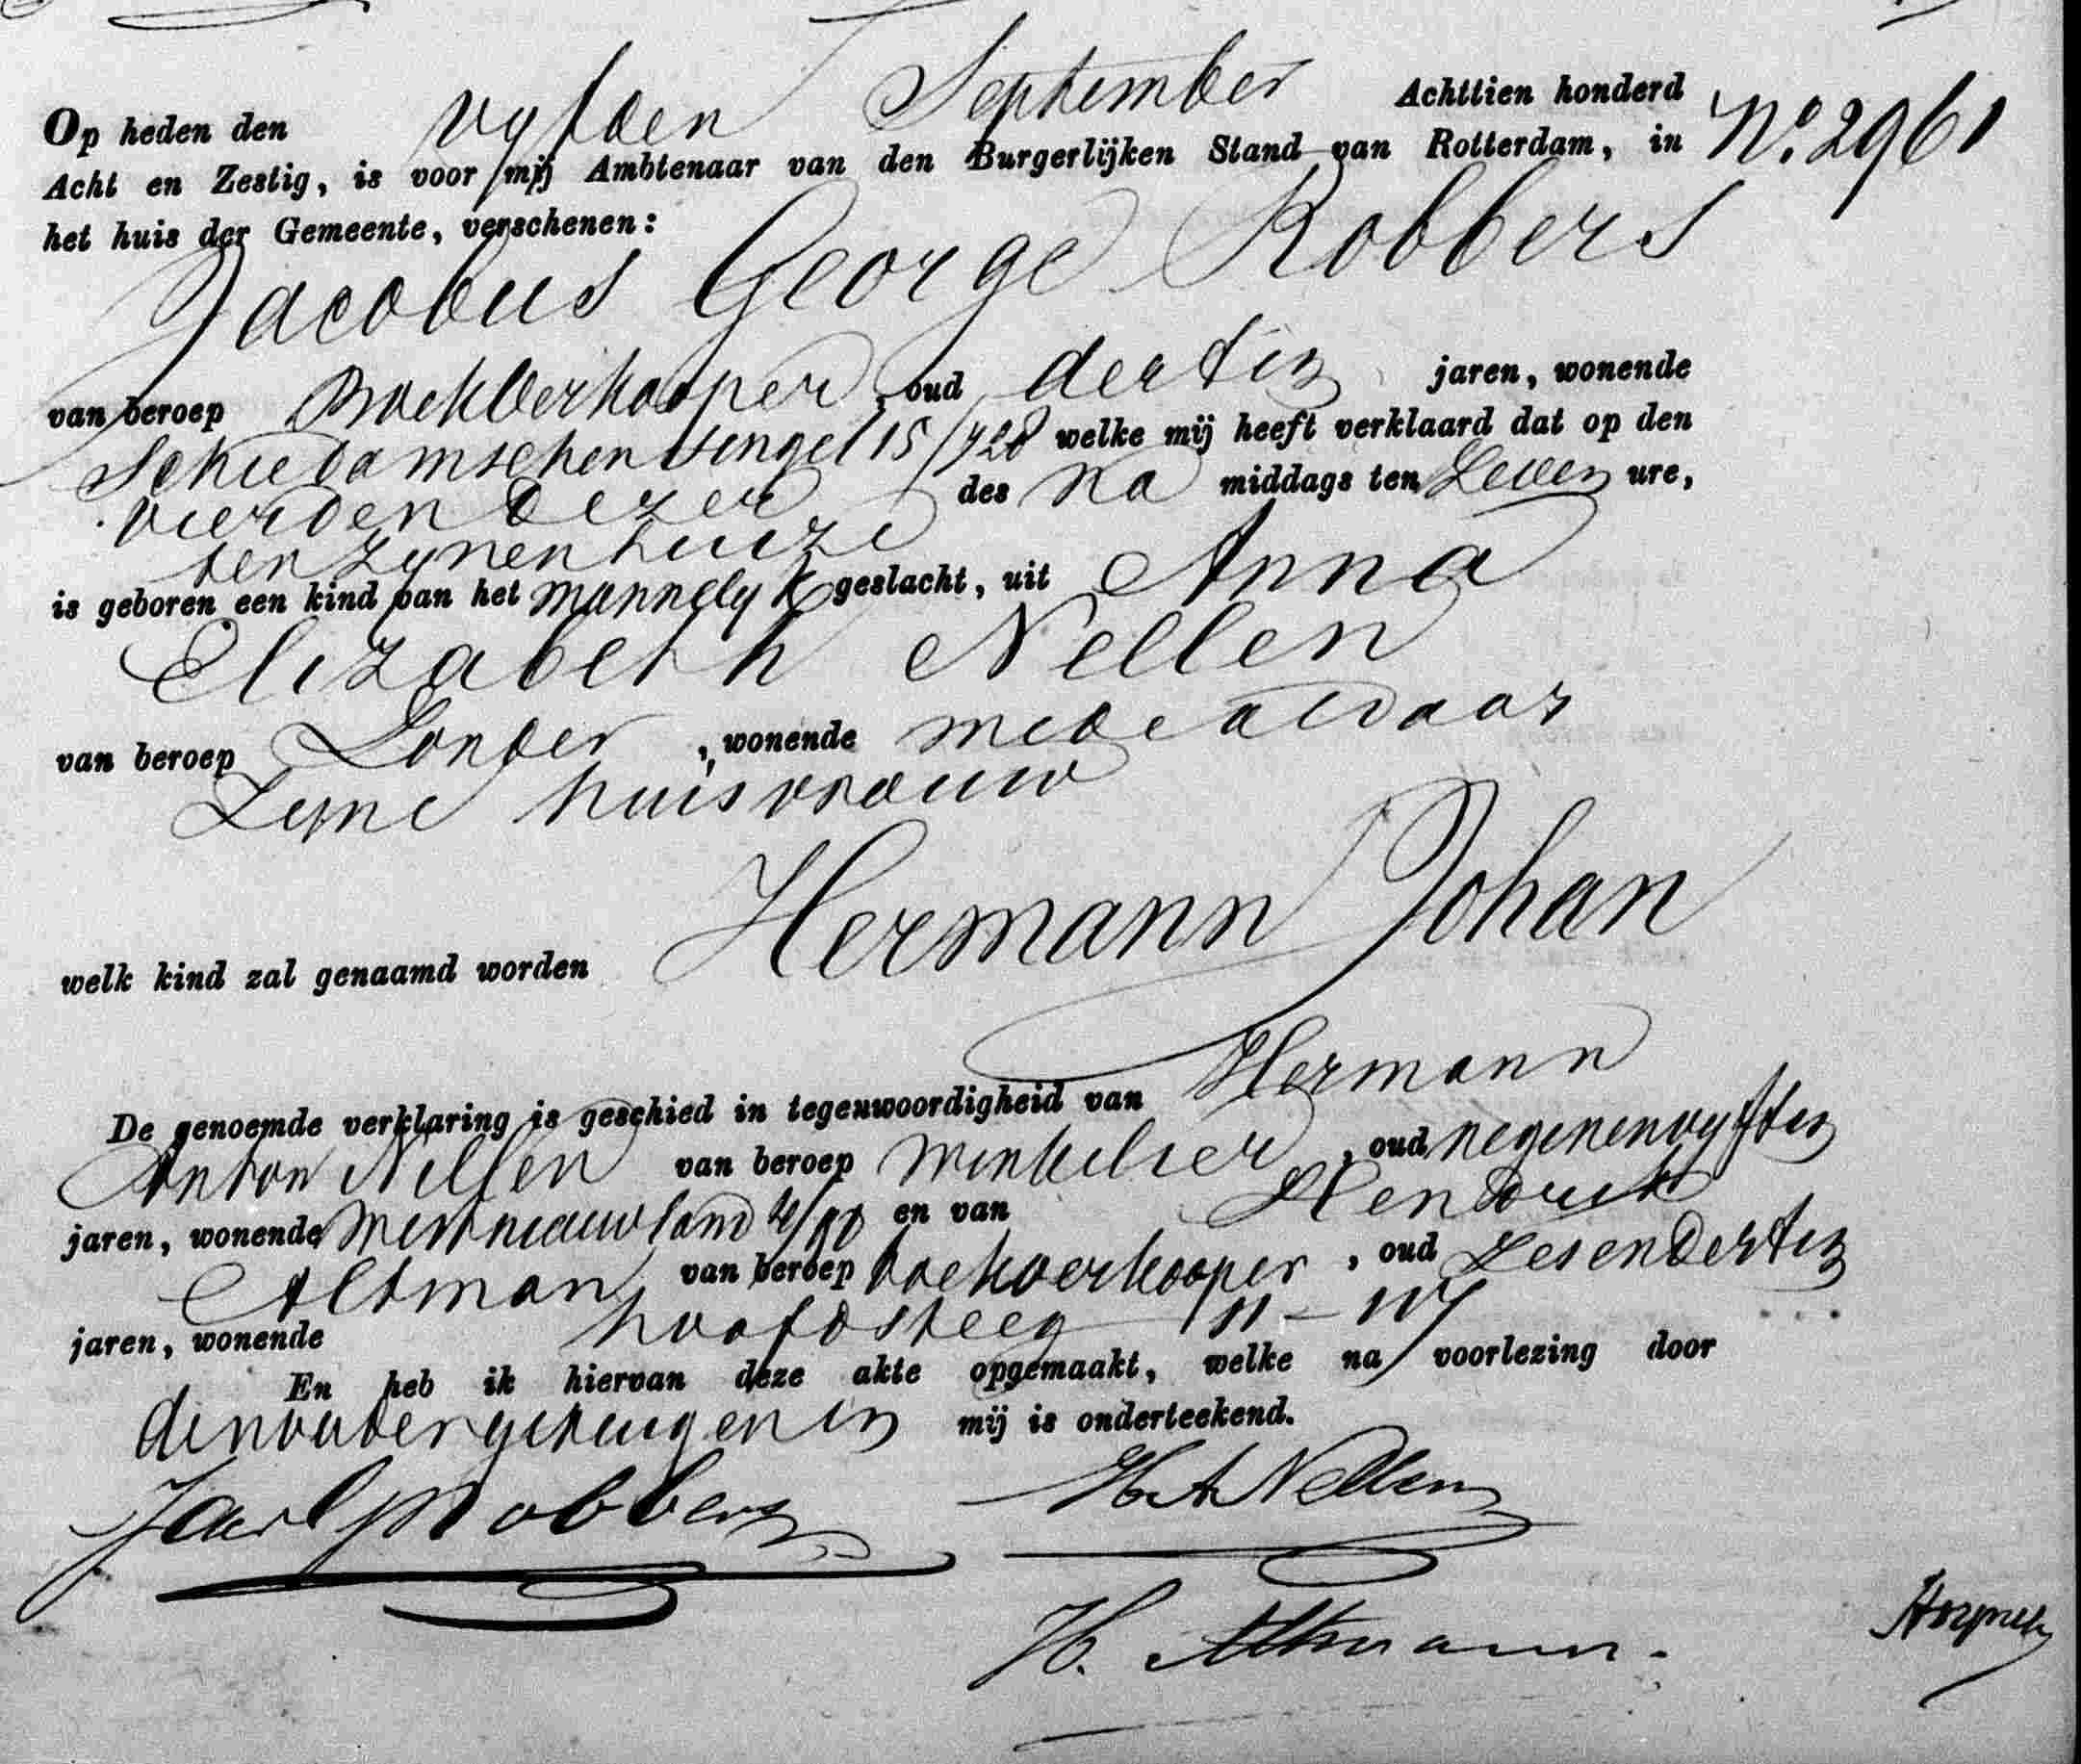 Op heden den vyfden September Achttien honderd
Acht en Zestig, is voor mij Ambtenaar van den Burgerlijken Stand van Rotterdam, in No. 2961
het huis der Gemeente, verschenen:
Jacobus George Robbers
van beroep Boekverkooper, oud dertig jaren, wonende
Schiedamschensingel 15/728 welke mij heeft verklaard dat op den
vierden dezer des Na middags ten Zeven ure,
ten zynen huize
is geboren een kind van het mannelyk geslacht, uit Anna
Elizabeth Nellen
van beroep Zonder, wonende mede aldaar
Zyne huisvrouw
welk kind zal genaamd worden Hermann Johan
De genoemde verklaring is geschied in tegenwoordigheid van Hermann
Anton Nellen van beroep Winkelier, oud negenenvyftig
jaren, wonende Westnieuwland en van Hendrik
Altman van beroep boekverkooper, oud Zesendertig
jaren, wonende hoofdsteeg
En heb ik hiervan deze akte opgemaakt, welke na voorlezing door
den vader getuigen en mij is onderteekend.
Robbers HANellen
H. Altmann.